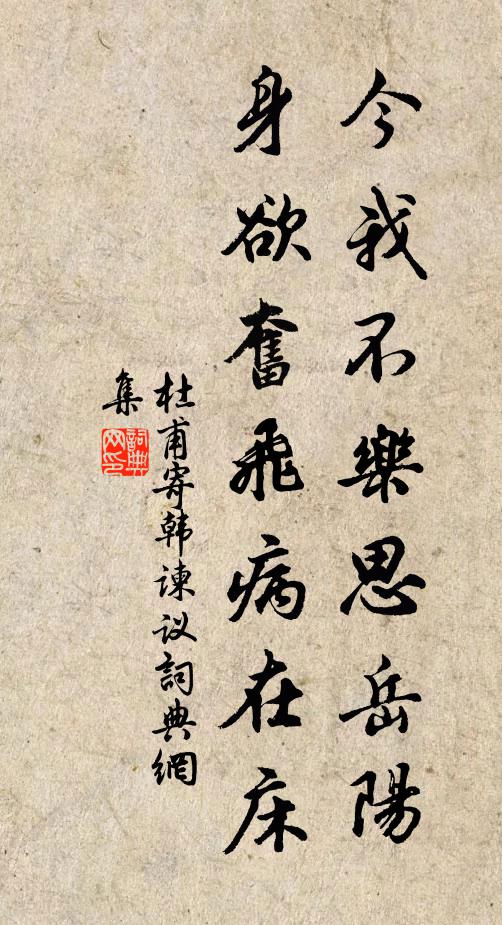 今我不樂思岳陽
身欲奮飛病在床
杜甫寄韩諫议詞典網
集
詞典网印